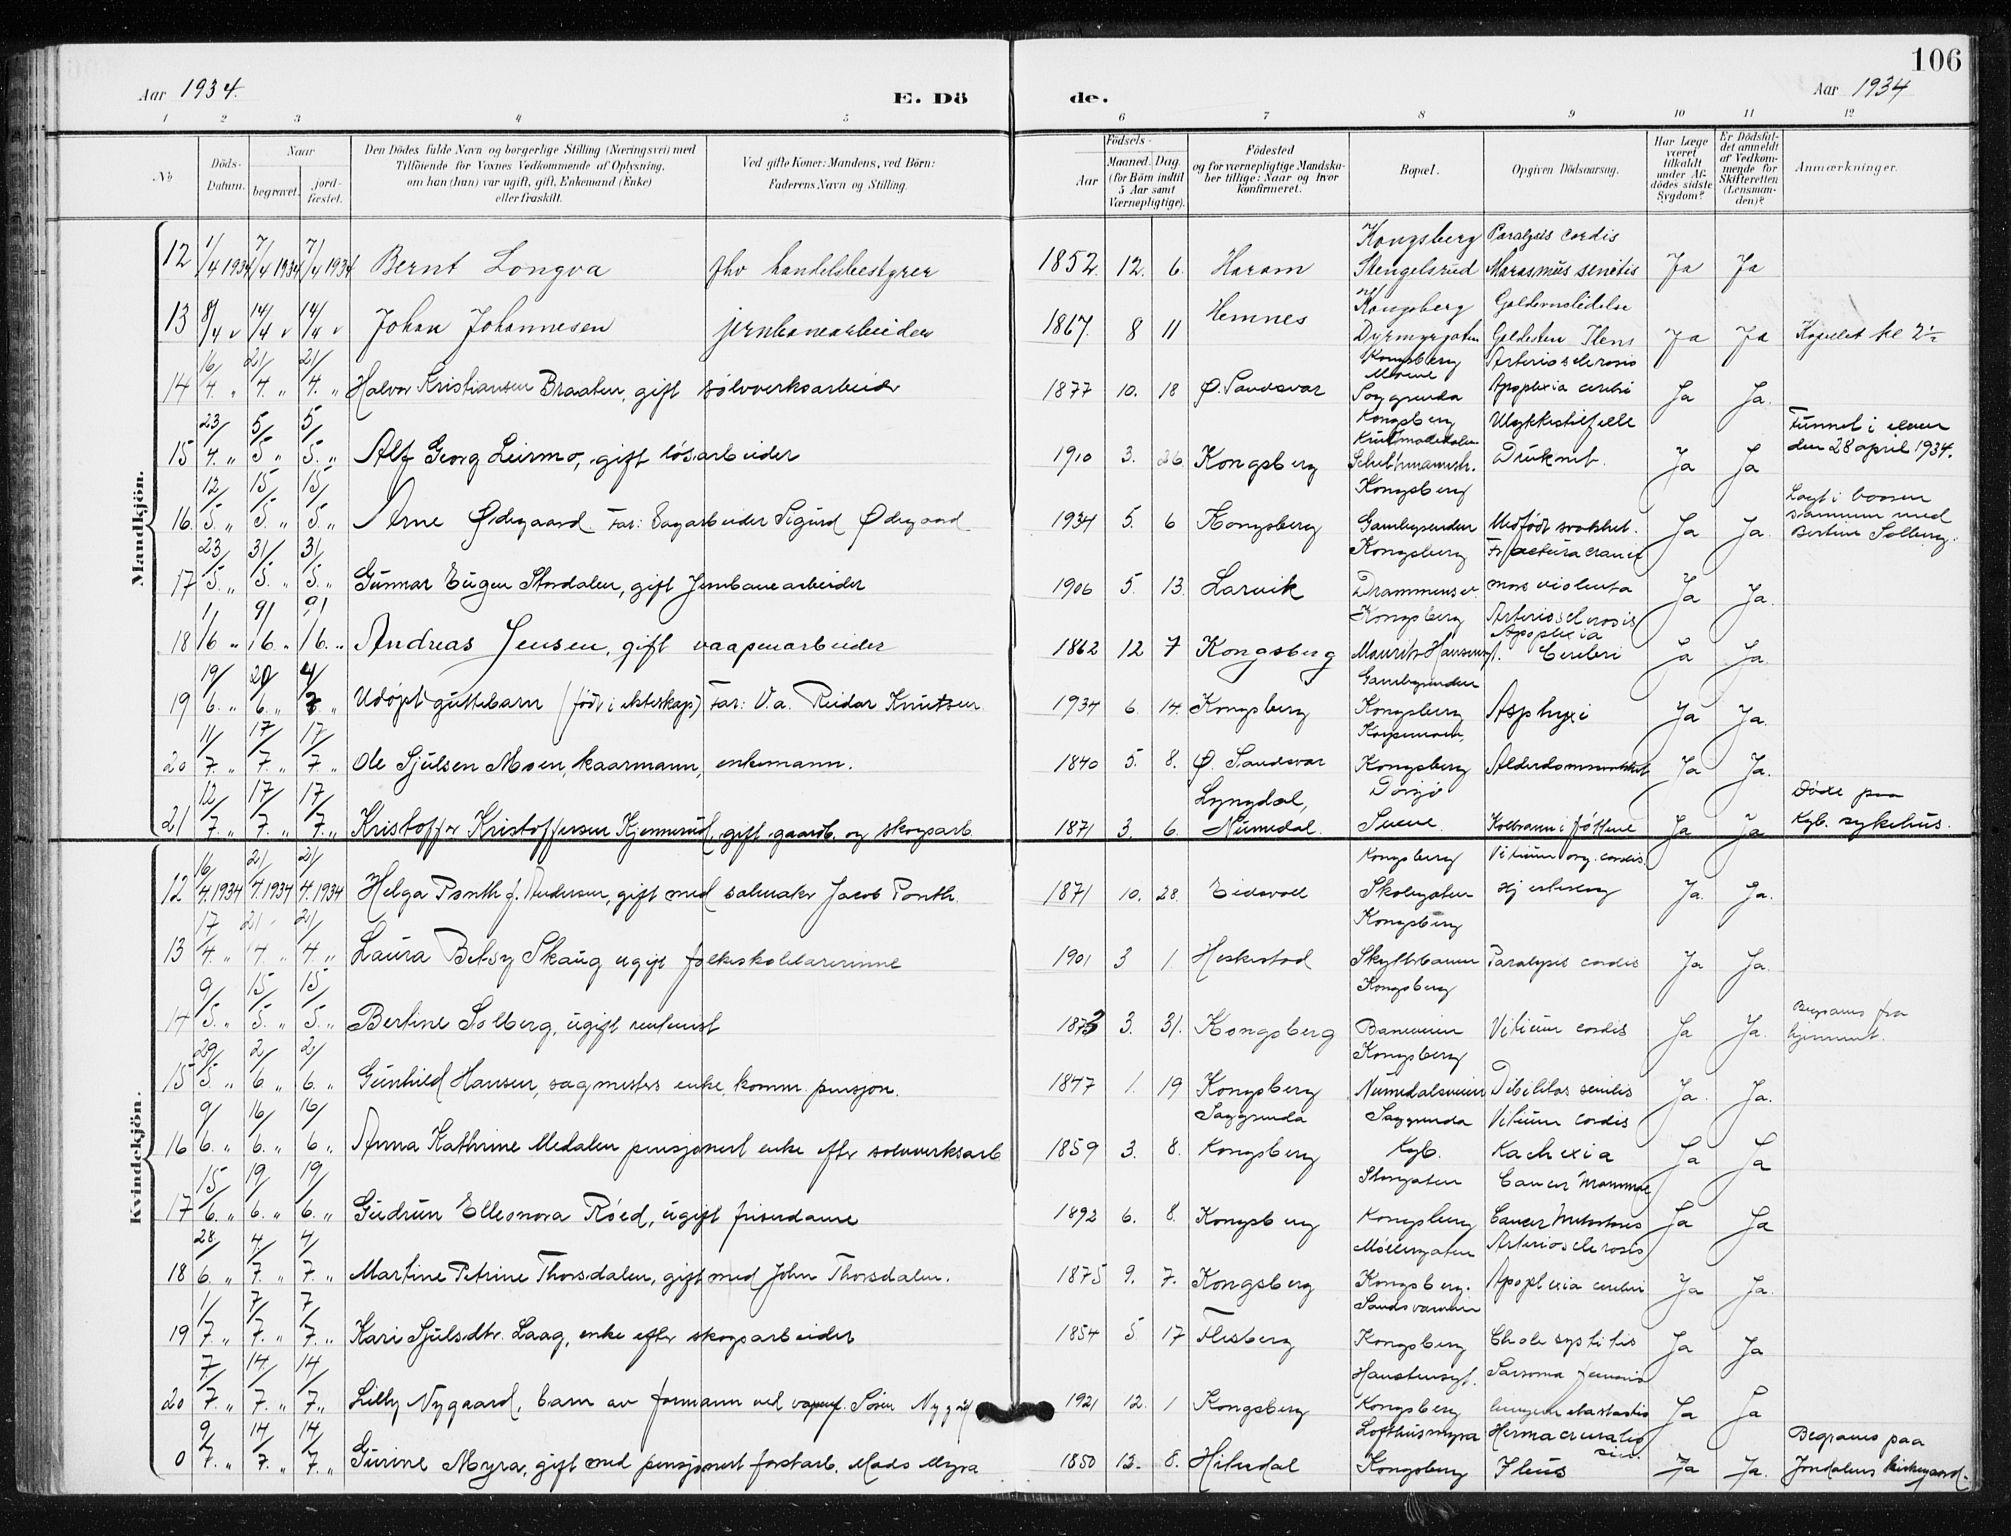 106
Aar 1934.
E. Dö
de.
Aar 1934
1 2 3 4 5 6 7 8 9 10 11 12
No
Döds-Datum.
Naar
begravet.
jord-fæstet.
Den Dödes fulde Navn og borgerlige Stilling (Næringsvei) med
Tilföiende for Voxnes Vedkommende af Oplysning,
om han (hun) var ugift, gift, Enkemand (Enke)
eller fraskilt.
Ved gifte Koner: Mandens, ved Börn:
Faderens Navn og Stilling.
Födsels-
Aar
Maaned. Dag.
(for Börn indtil
5 Aar samt
Værnepligtige).
Födested
og for værnepligtige Mandska-
ber tillige: Naar og hvor
konfirmeret.
Bopæl.
Opgiven Dödsaarsag.
Har Læge
været
tilkaldt
under Af-
dödes sidste
Sygdom?
Er Dödsfal-
det anmeldt
af Vedkom-
mende for
Skifteretten
(Lensman-
den)?
Anmærkninger.
Mandkjön.
12 1/4 1934 7/4 1934 7/4 1934 Bernt Longva fhv handelsbestyrer 1852. 12. 6. Haram Kongsberg Stengelsrud Paralysis cordis Marasmus senilis Ja Ja
13 8/4 " 14/4 " 14/4 " Johan Johannesen jernbanearbeider 1867. 8 11 Hemnes Kongsberg Dyrmyrgaten Galdestein Ilens Ja Ja Kapellet kl 2½
14 16/4. " 21/4. " 21/4. " Halvor Kristiansen Braaten, gift sølvverksarbeider 1877 10. 18 Ø. Sandsvar Kongsberg Saggrenda Arteriosclerosis Apoplexia cerebri Ja Ja.
15 23/4. " 5/5 " 5/5. " Alf Georg Leirmo, gift løsarbeider 1910 3. 26. Kongsberg Kongsberg Ulykkestilfelle Druknet. Ja Ja Funnet i elven den 28 april 1934.
16. 12/5. " 15/5. " 15/5. " Arne Ødegaard. Far: Sagarbeider Sigurd Ødegaard 1934 5. 6 Kongsberg Kongsberg Gamlegrenden Medfødt svakhet. Ja Ja. Lagt i baaren sammen med Bertine Solberg.
17 23/5. " 31/5. " 31/5. " Gunnar Eugen Stordalen, gift Jernbanearbeider 1906 5. 13. Larvik Kongsberg Drammensv. Fractura cranii mors violenta Ja Ja.
18 1/6 " 9/6. " 9/6. " Andreas Jensen, gift vaapenarbeider 1862 12 7 Kongsberg Kongsberg Maurits Hansensgt. Arteriosclerosis Apoplexia Cerebri Ja Ja.
19 19/6. " 20/6. " 4/7 " Udøpt guttebarn (født i ekteskap) Far: V.a. Reidar Knutsen 1934 6. 14. Kongsberg Gamlegrenden Kongsberg Asphyxi Ja Ja.
20 11/7. " 17/7. " 17/7. " Ole Sjulsen Moen, kaarmann, enkemann. 1840 5. 8. Ø. Sandsvar Kongsberg Alderdomssvakhet Ja Ja.
21 12/7. " 17/7. " 17/7. " Kristoffer Kristoffersen Kjennerud, gift gaardb. og skogsarb. 1871 3. 6. Lyngdal, Numedal. Kolbrann i føttene Ja Ja Døde paa Kgb. sykehus.
Kvindekjön.
12 16/4. 1934 21/4. 1934 21/4. 1934 Helga Ponth f. Andersen, gift med salmaker Jacob Ponth. 1871 10. 28. Eidsvoll Kongsberg Skolegaten Vitium org. cordis. Ja. Ja.
13 17/4. " 21/4. " 21/4. " Laura Betsy Skaug ugift folkeskolelærerinne 1901 3 1. Heskestad Kongsberg Paralysis cordis Ja Ja.
14 9/5. " 15/5. " 15/5. " Bertine Solberg, ugift rentenist 1873 3. 31. Kongsberg Kongsberg Baneveien Vitium cordis Ja Ja. Begraves fra hjemmet.
15 29/5 " 2/6 " 2/6. " Gunhild Hansen, sagmesters enke, komm. pensjon. 1847 1. 19 Kongsberg Kongsberg Numedalsveien Debilitas senilis Ja. Ja.
16 9/6. " 16/6. " 16/6 " Anna Kathrine Medalen pensjonert enke efter sølvverksarb. 1859 3. 8. Saggrenda Kongsberg Saggrenda Kgb. Vitium cordis Kachexia Ja Ja
17 15/6. " 19/6. " 19/6. " Gudrun Elleonora Røed, ugift friserdame 1892 6. 8. Kongsberg Storgaten Kongsberg Cancer Mammae Cancer Metastasis Ja Ja
18 28/6. " 4/7. " 4/7. " Martine Petrine Thorsdalen, gift med John Thorsdalen. 1875 9. 7. Kongsberg Møllergaten Kongsberg. Arteriosclerosis Apoplexia cerebri Ja Ja.
19 1/7. " 7/7. " 7/7. " Kari Sjulsdtr. Laag, enke efter skogsarbeider 1854 5. 17 Flesberg Sandsværveien Kongsberg Cholecystitis Ja Ja
20 7/7. " 14/7. " 14/7. " Lilly Nygaard, barn av formann ved vapenf. Søren Nygård 1921 12. 1 Kongsberg Kongsberg Sarcoma femoris Ja Ja
0 9/7. " 14/7. " 14/7. " Gurine Myra, gift med pensjonert forstarb. Mads Myra 1850 12. 8. Hiterdal Lofthusmyra Kongsberg Hernia cruralis sin. Ileus Ja Ja. Begraves paa Jondalens kirkegaard.